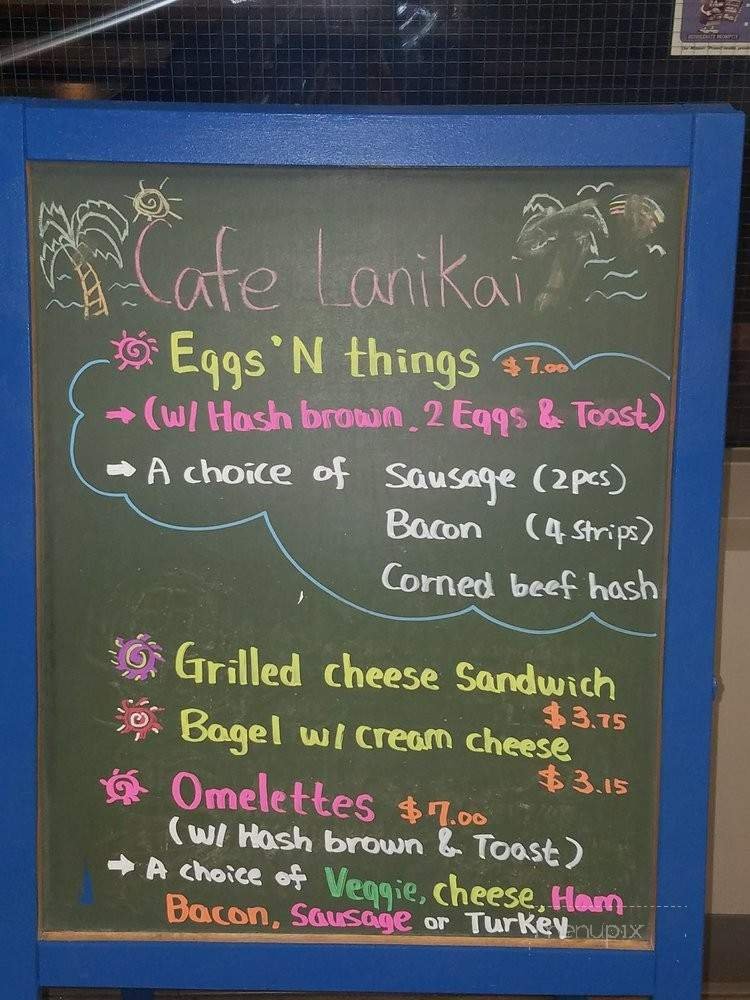 Cafe Lanikai
Eggs'N things $7.00
→ (w/ Hash brown, 2 Eggs & Toast)
→ A choice of Sausage (2pcs)
Bacon (4 strips)
Corned beef hash
Grilled cheese Sandwich
$3.75
Bagel w/ cream cheese
$3.15
Omelettes $7.00
(w/ Hash brown & Toast)
→ A choice of Veggie, cheese, Ham
Bacon, Sausage or Turkey
menupix